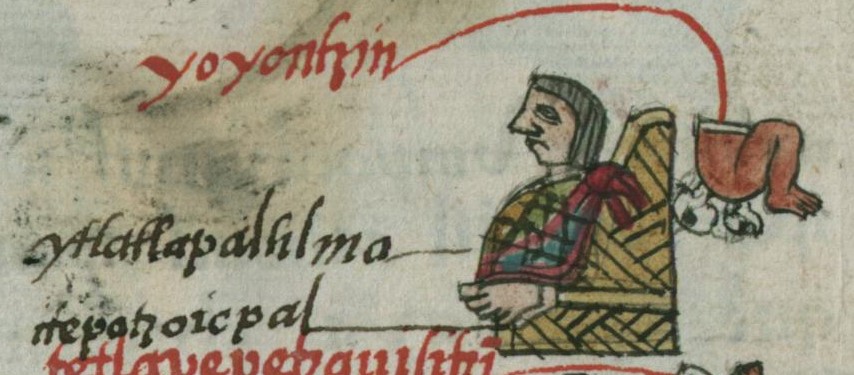 yoyontzin
ytlatlapaltilma
ytepotzoicpal